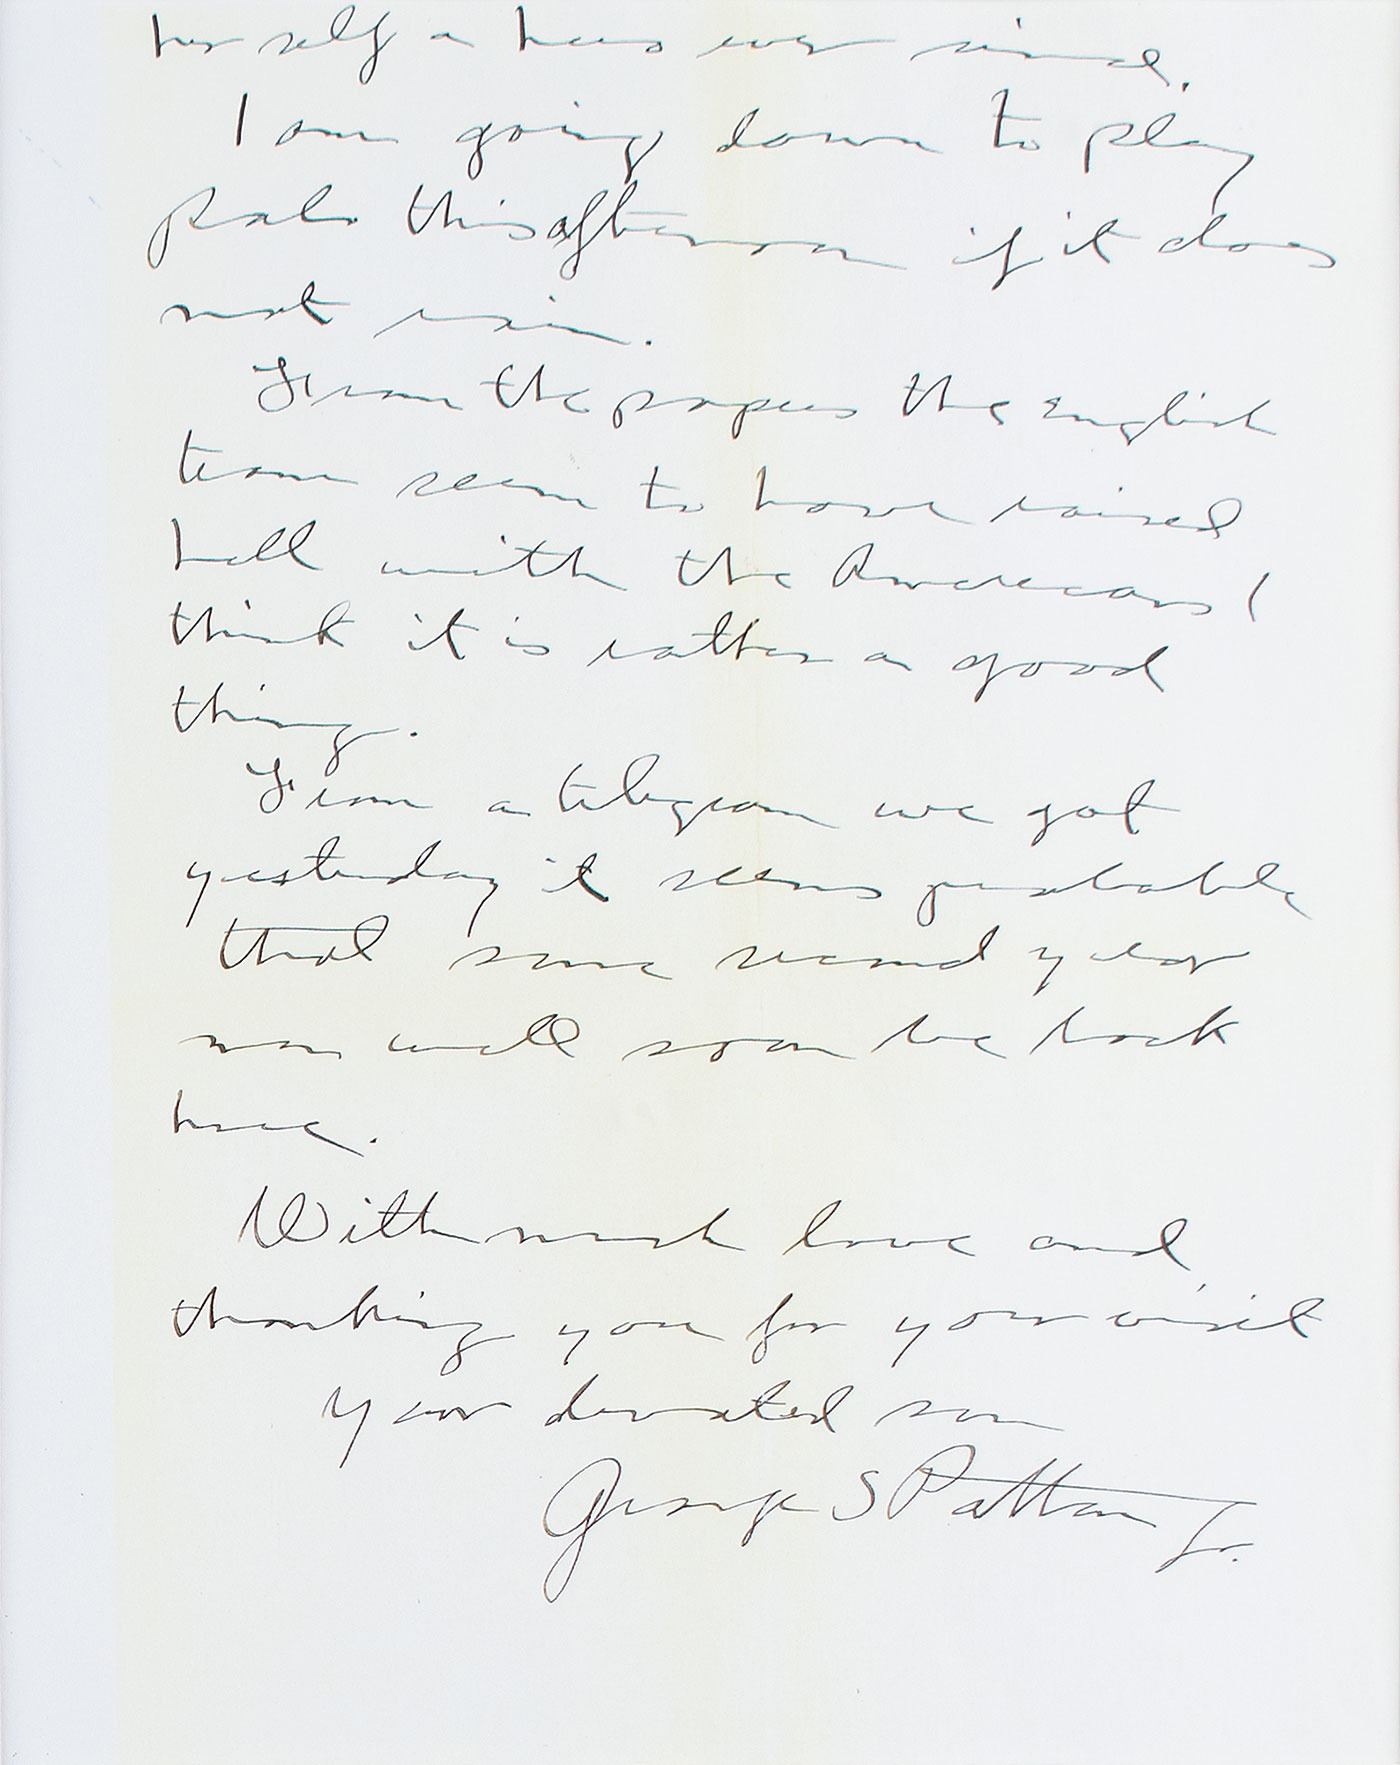 her self a hero ever since.
I am going down to play
polo this afternoon if it does
not rain.
From the papers the English
team seem to have raised
hell with the Americans I
think it is rather a good
thing.
From a telegram we got
yesterday it seems probable
that some second year
men will soon be back
here.
With much love and
thanking you for your visit
your devoted son
George S Patton Jr.